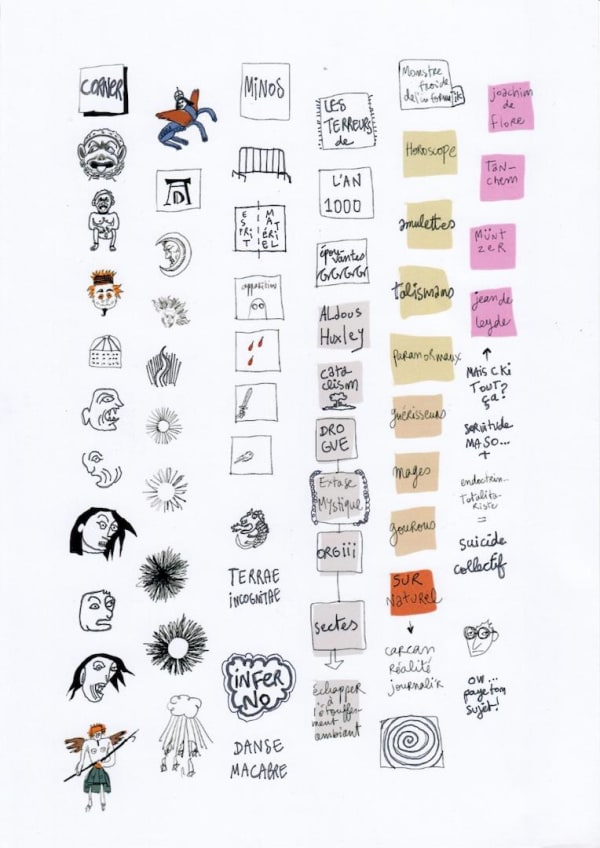 CORNER
AD
MINOS
ESPRIT
MATÉRIEL
apparition
TERRAE
INCOGNITAE
INFER
NO
DANSE
MACABRE
LES
TERREURS
de
L'AN
1000
épou-
vantes
GrGrGrGr
ALDOUS
HUXLEY
cata
clism
DRO
GUE
EXTASE
MYSTIQUE
ORGiii
sectes
échapper
à
l'étouffe-
ment
ambiant
Monstre
froide
de l'informatik
HOROSCOPE
amulettes
talismans
paranormaux
guérisseurs
mages
gourous
SUR
Naturel
carcan
Réalité
journalik
joachim
de
Flore
TAN-
chem
MÜNT
ZER
jean de
Leyde
MAIS C KI
TOUT?
ça?
SERVITUDE
MASO...
+
endoctrin-
Totalita-
Riste
=
suicide
collectif
OW...
page ton
sujet!